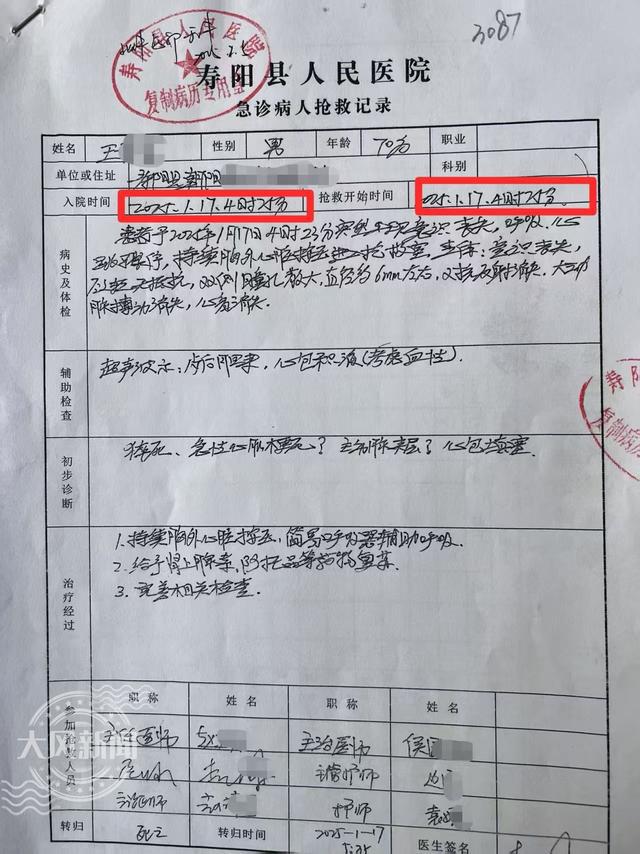 3087
2025.2.5
寿阳县人民医院
复制病历专用章
寿阳县人民医院
急诊病人抢救记录
姓名 王 性别 男 年龄 70岁 职业
单位或住址 寿阳县朝阳 科别
入院时间 2025.1.17.4时25分 抢救开始时间 025.1.17.4时25分.
病史及体检
患者于2025年1月17日4时23分突然出现意识丧失,呼吸、心
跳骤停,持续胸外心脏按压进入抢救室,查体:意识丧失,
双侧瞳孔散大,直径约6mm左右,对光反射消失,大动
脉搏动消失,心音消失.
辅助检查
超声提示:心包积液(考虑血性).
寿阳
复制病历
初步诊断
猝死、急性心肌梗死?主动脉夹层?心包填塞
治疗经过
1.持续胸外心脏按压,简易呼吸器辅助呼吸.
2.给予肾上腺素,阿托品等药物复苏.
3.完善相关检查.
参加抢救人员
职称 姓名 职称 姓名
主任医师 主治医师 侯
主管护师
护师 袁
转归 死亡 转归时间 2025-1-17 医生签名
5:35
大风新闻